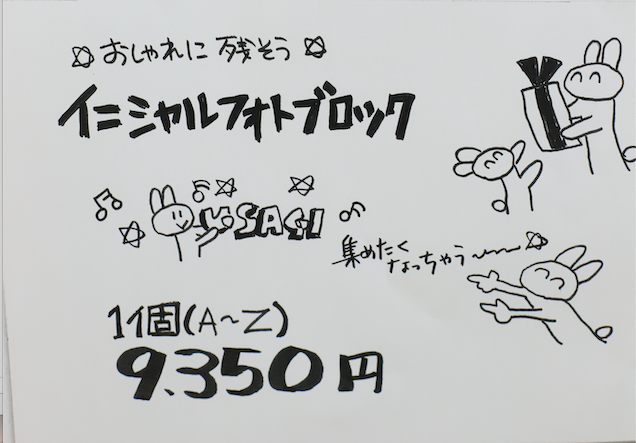 おしゃれに残そう
イニシャルフォトブロック
USAGI
集めたく
なっちゃう〜
1個(A〜Z)
9.350円